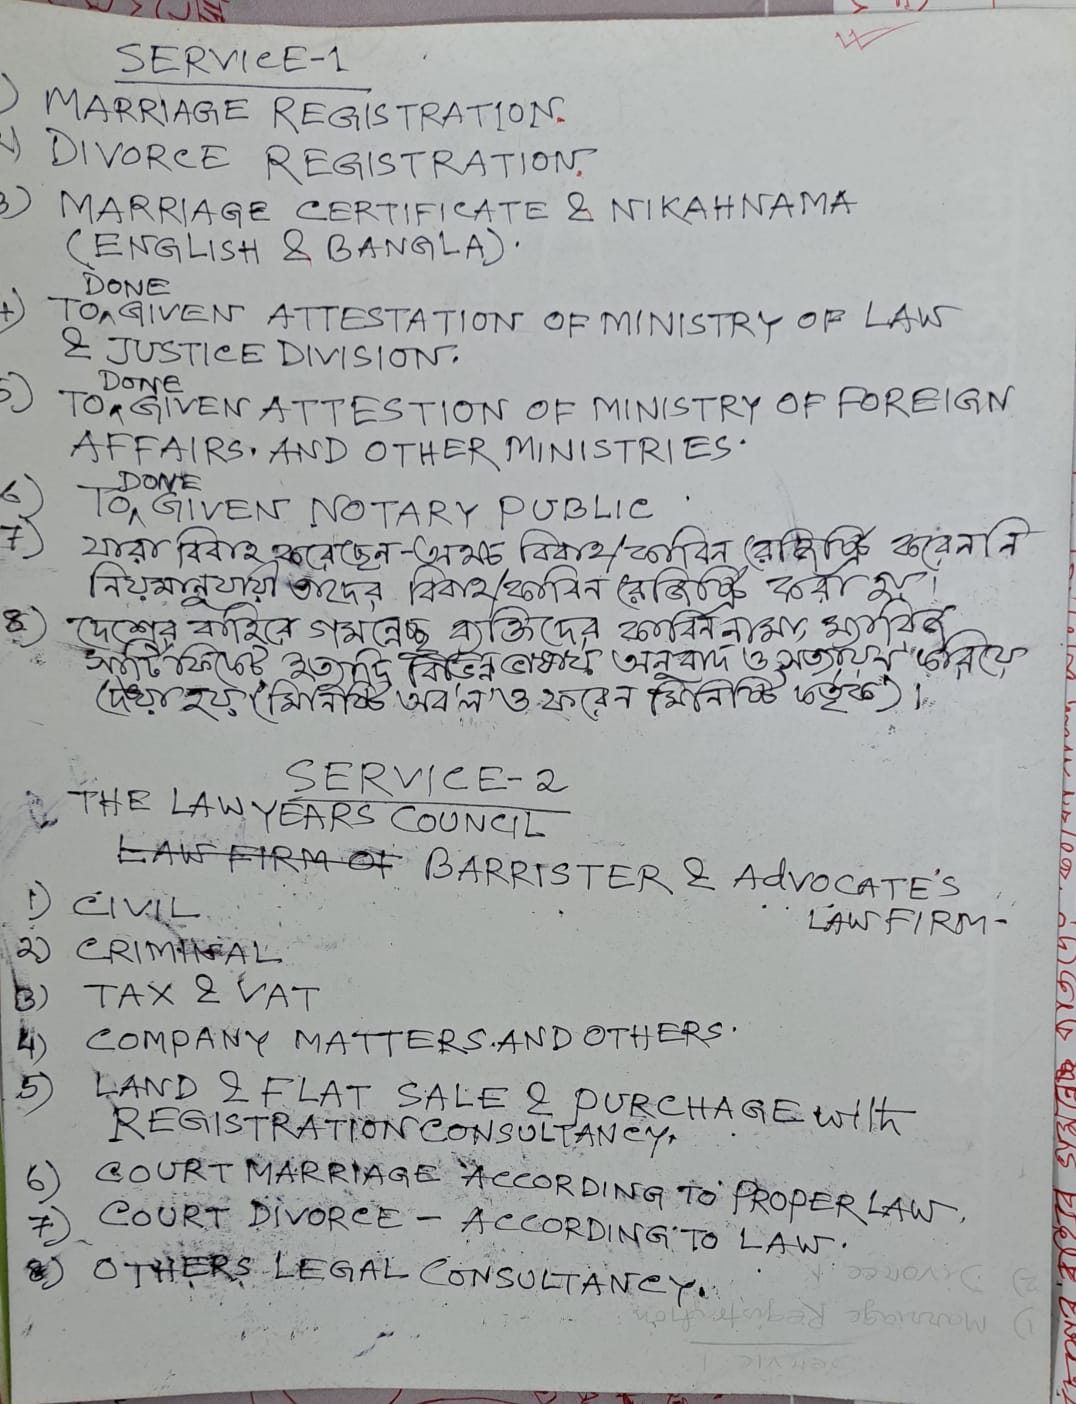 SERVICE-1
) MARRIAGE REGISTRATION.
) DIVORCE REGISTRATION.
3) MARRIAGE CERTIFICATE & NIKAHNAMA
(ENGLISH & BANGLA).
DONE
TO^GIVEN ATTESTATION OF MINISTRY OF LAW
& JUSTICE DIVISION.
DONE
5) TO^GIVEN ATTESTION OF MINISTRY OF FOREIGN
AFFAIRS. AND OTHER MINISTRIES.
DONE
6) TO^GIVEN NOTARY PUBLIC
7) যারা বিবাহ করেছেন-অথচ বিবাহ/কাবিন রেজিষ্ট্রি করেননি
নিয়মানুযায়ী তাদের বিবাহ/কাবিন রেজিষ্ট্রি করা হয়।
8) দেশের বাহিরে গমনেচ্ছু ব্যক্তিদের কাবিননামা, ম্যারিজ
সার্টিফিকেট ইত্যাদি বিভিন্ন ভাষায় অনুবাদ ও সত্যায়ন করিয়ে
দেয়া হয় (মিনিষ্ট্রি অব ল' ও ফরেন মিনিষ্ট্রি কর্তৃক)।
SERVICE-2
THE LAWYEARS COUNCIL
LAW FIRM OF BARRISTER & AdVOCATE'S
LAW FIRM-
1) CIVIL
2) CRIMINAL
3) TAX & VAT
4) COMPANY MATTERS.AND OTHERS.
5) LAND & FLAT SALE & PURCHAGE with
REGISTRATION CONSULTANCY.
6) COURT MARRIAGE ACCORDING TO PROPER LAW.
7) COURT DIVORCE - ACCORDING TO LAW.
8) OTHERS LEGAL CONSULTANCY.